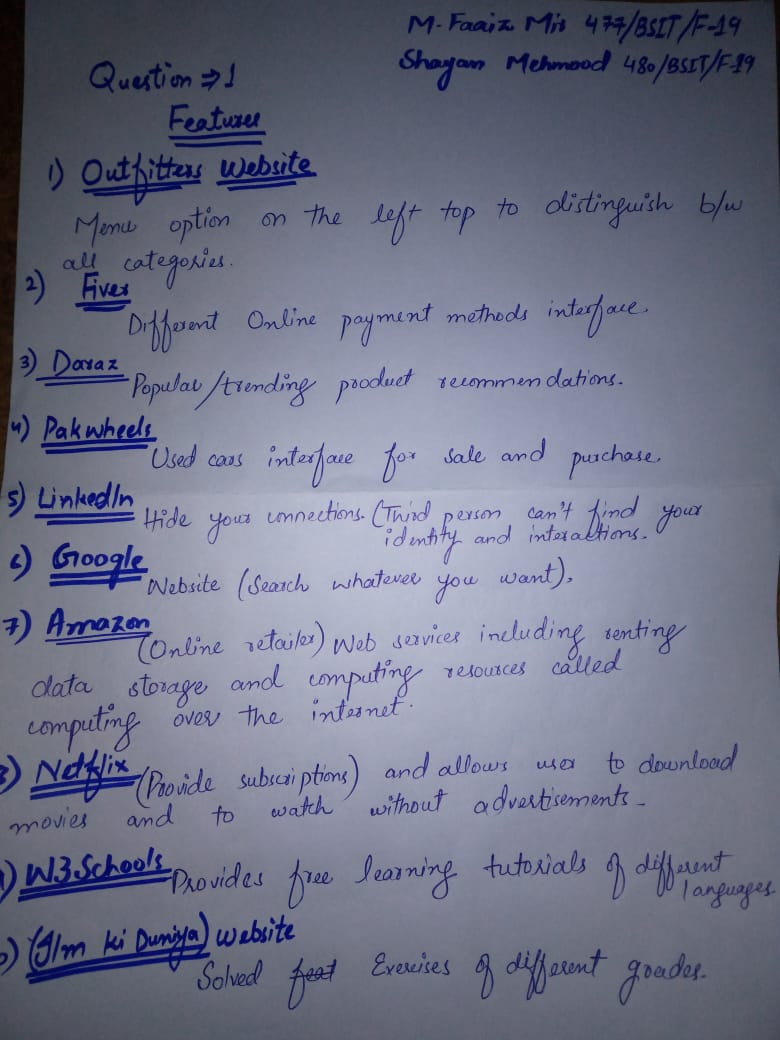 M-Faaiz Mir 477/BSIT/F-19
Shayan Mehmood 480/BSIT/F-19
Question ⇒ 1
Features
1) Outfitters Website
Menu option on the left top to distinguish b/w
all categories.
2) Fiver
Different Online payment methods interface.
3) Daraz
Popular/trending product recommendations.
4) Pakwheels
Used cars interface for sale and purchase.
5) LinkedIn
Hide your connections. (Third person can't find your
identity and interactions.
6) Google
Website (Search whatever you want).
7) Amazon
(Online retailer) Web services including renting
data storage and computing resources called
computing over the internet.
) Netflix (Provide subscriptions) and allows user to download
movies and to watch without advertisements.
) W3Schools Provides free learning tutorials of different
languages.
) (Ilm ki Duniya) website
Solved feat Exercises of different grades.